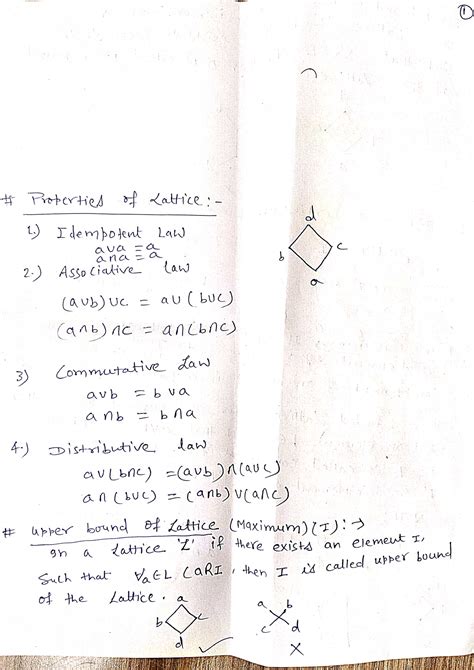 1
# Properties of Lattice:-
d
b
c
a
1.) Idempotent Law
a∪a = a
a∩a = a
2.) Associative law
(a∪b)∪c = a∪(b∪c)
(a∩b)∩c = a∩(b∩c)
3) Commutative Law
a∪b = b∪a
a∩b = b∩a
4.) Distributive law
a∪(b∩c) = (a∪b)∩(a∪c)
a∩(b∪c) = (a∩b)∪(a∩c)
# Upper bound of Lattice (Maximum)(I):→
In a lattice 'L' if there exists an element I,
Such that ∀a∈L (aRI, then I is called upper bound
of the Lattice.
a
b
c
d
a
b
c
d